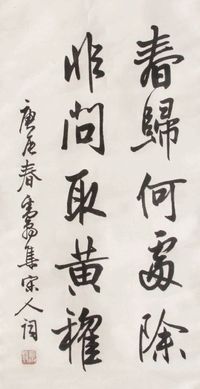 春歸何處除
非問取黃鸝
庚辰春集宋人詞